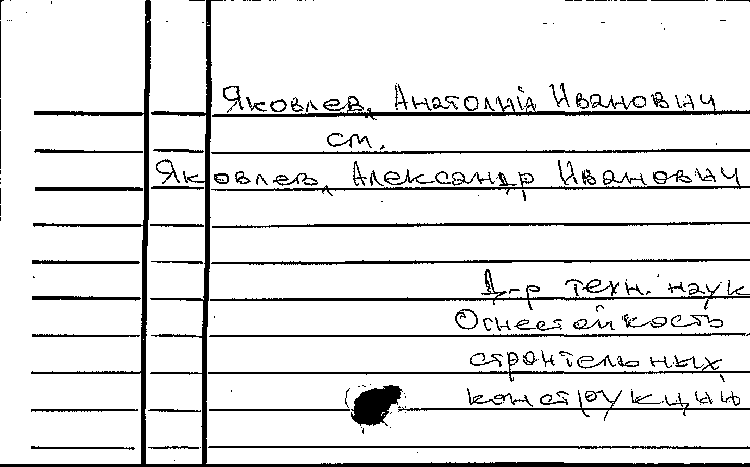 Яковлев, Анатолий Иванович
см.
Яковлев, Александр Иванович
Д-р техн. наук
Огнестойкость
строительных
конструкций